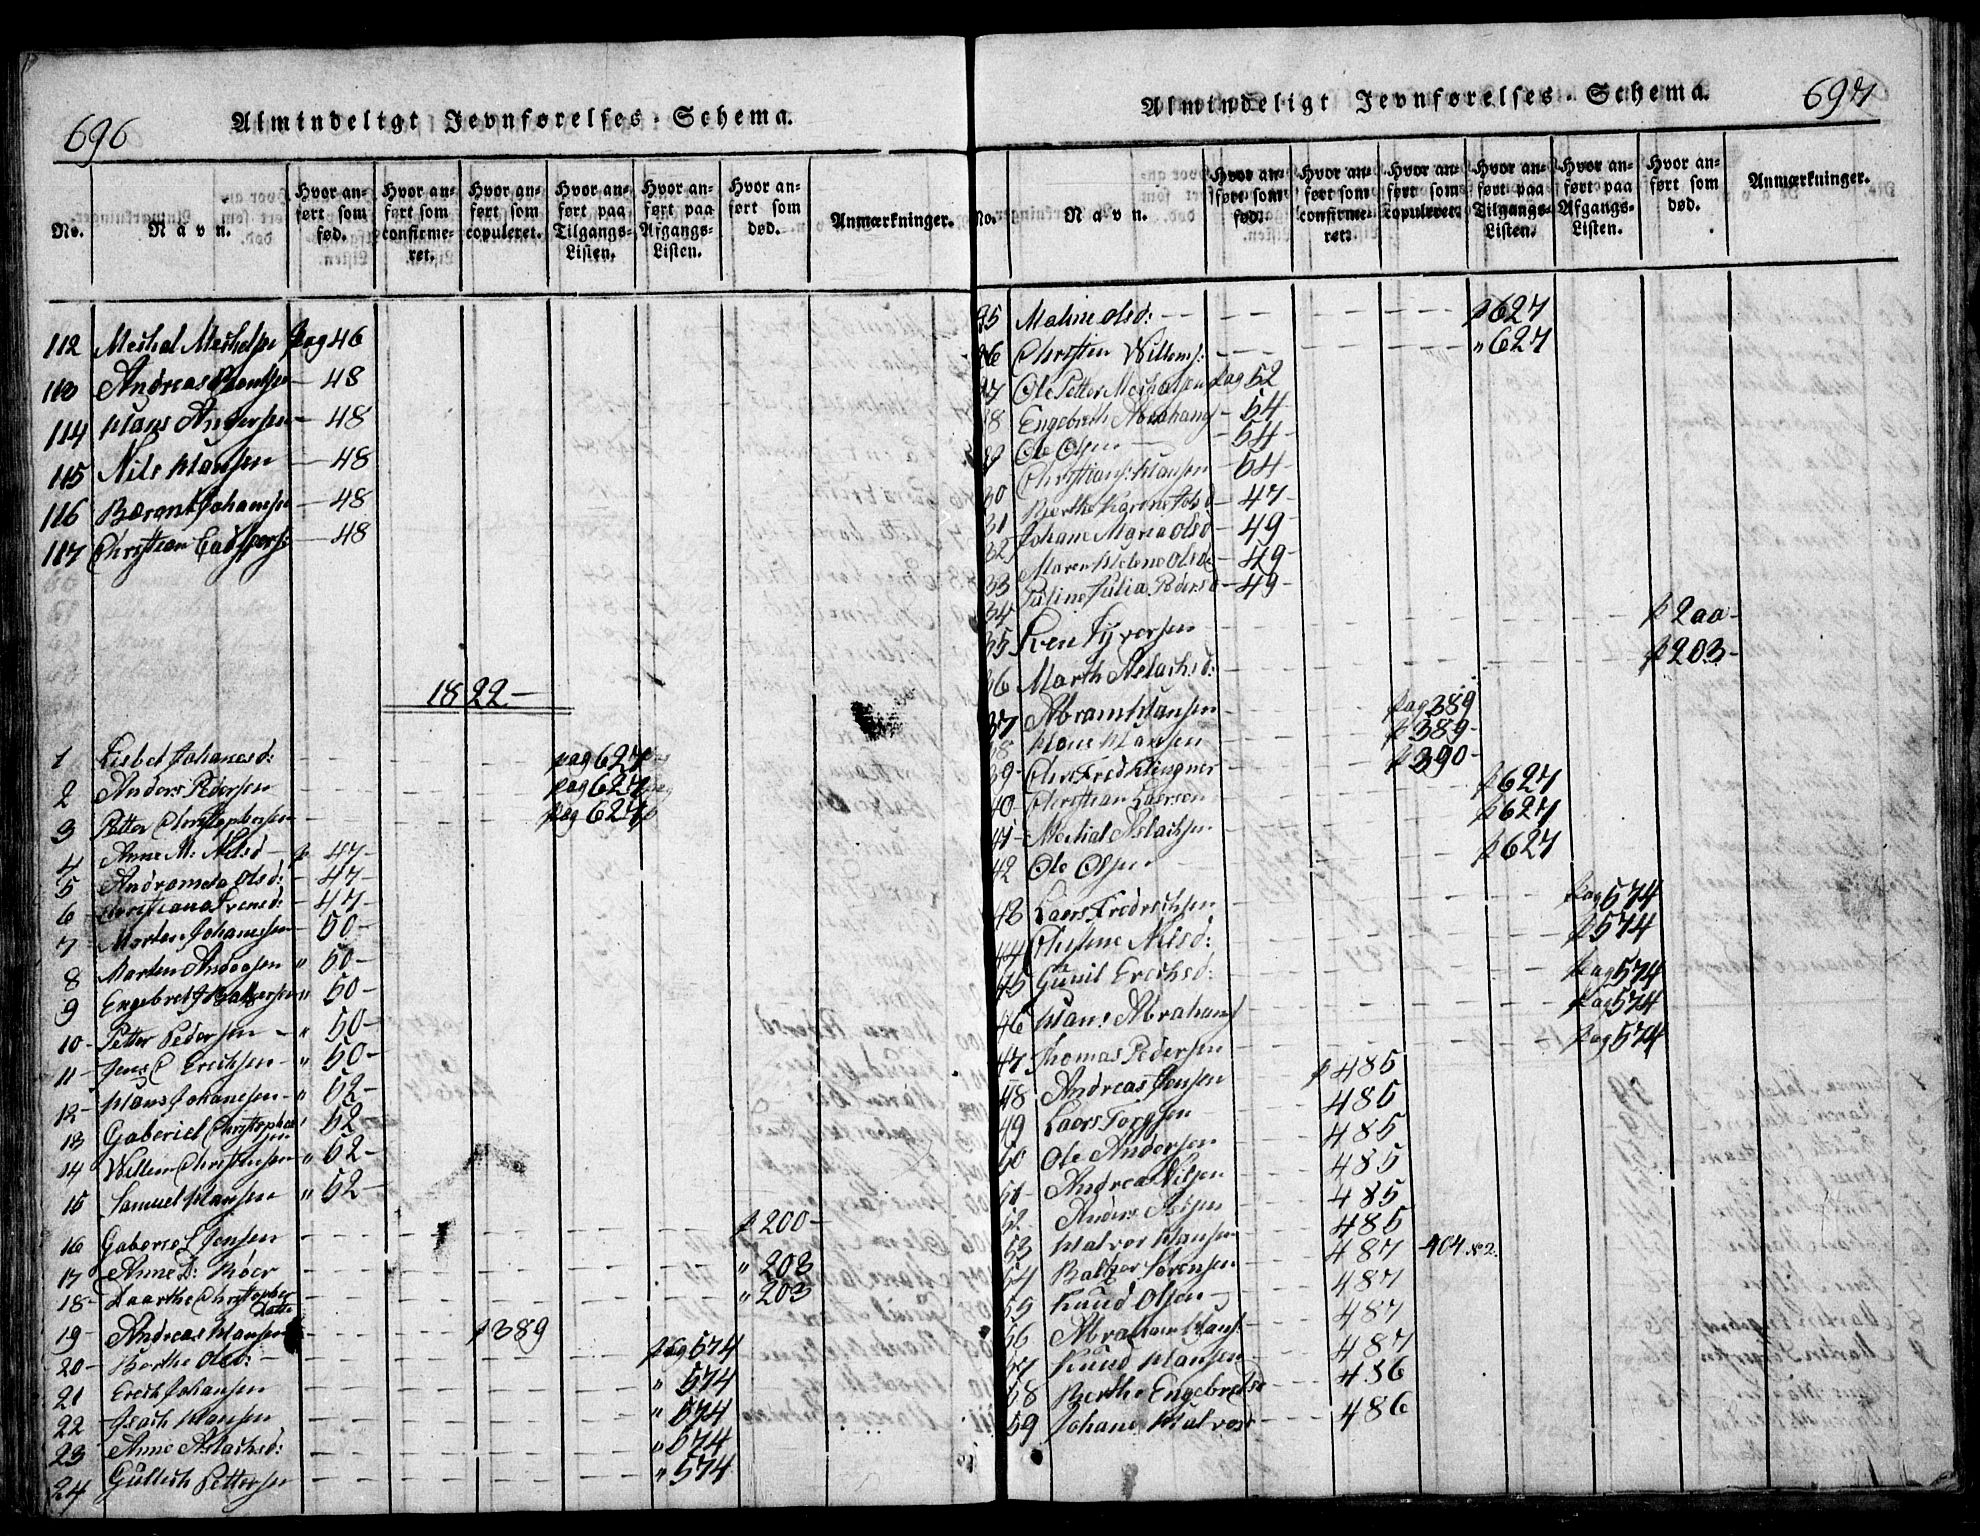 696
Almindeligt Jevnførelses-Schema.
No.
Navn.
Hvor anført som fød.
Hvor anført som confirmeret.
Hvor anført som copuleret.
Hvor anført paa Tilgangs-Listen.
Hvor anført paa Afgangs-Listen.
Hvor anført som død.
Anmærkninger.
112 Michal Michelse pag 46
113 Andreas 48
114 Hans Andersen 48
115 Nils Hansen 48
116 Bærent Johansen 48
117 Christian 48
1822
1 Lisbet Johanesd: pag 627
2 Anders Pedersen pag 627
3 Petter Christophersen pag 627
4 Anne M: Nilsd p 47
5 Andromeda Olsd: 47
6 Christiana Svensd: 47
7 Morten Johansen 50
8 Marten Andersen " 50
9 Engebret " 50
10 Petter Pedersen " 50
11 Jens C Erichsen " 50
12 Hans Johansen " 52
13 Gaberiel Christophersen " 52
14 Willem Christensen " 52
15 Samuel Hansen " 52
16 Gaberiel Jensen p 200
17 Anne D: Röer " 203
18 Daarthe Christopher Datter " 203
19 Andreas Hansen p 389
20 Berthe Olsd: pag 574
21 Erich Johansen " 574
22 Isach Hansen " 574
23 Anne Aslachsd: " 574
24 Gullich Pettersen " 574
697
Almindeligt Jevnførelses-Schema.
No.
Navn.
Hvor anført som fød.
Hvor anført som confirmeret.
Hvor anført som copuleret.
Hvor anført paa Tilgangs-Listen.
Hvor anført paa Afgangs-Listen.
Hvor anført som død.
Anmærkninger.
25 Maline Olsd: p 627
26 Christen Willems: " 627
27 Ole Petter Michalsen pag 52
28 Engebreth Abrahams 54
29 Ole Olsen 54
30 Hansen 54
31 Berthe Karene 47
32 Johane Maria Olsd 49
33 Maren Helene Olsd 49
34 Juline Julia Pedersd 49
35 Sven p 200
36 Marth Aslachsd: p 203
37 Abram Hansen pag 389
38 Hans Hansen p 389
39 Chrs Fred Klingner p 390
40 Christian Laersen p 627
41 Michal Aslachsen p 627
42 Ole Olsen p 627
43 Laers Fredrichsen pag 574
44 Nilsd: p 574
45 Gunil Erichsd: pag 574
46 Hans Abrahams pag 574
47 Thomas Pedersen pag 574
48 Andreas Jensen p 485
49 Laers 485
50 Ole Andersen 485
51 Andreas Nilsen 485
52 Anders 485
53 Halvor Hansen 485
54 Baltzer Sørensen 487 404 No 2.
55 Knud Olsen 487
56 Abraham Hans: 487
57 Knud Hansen 487
58 Berthe Engebretsd 486
59 Johane Halvorsd 486